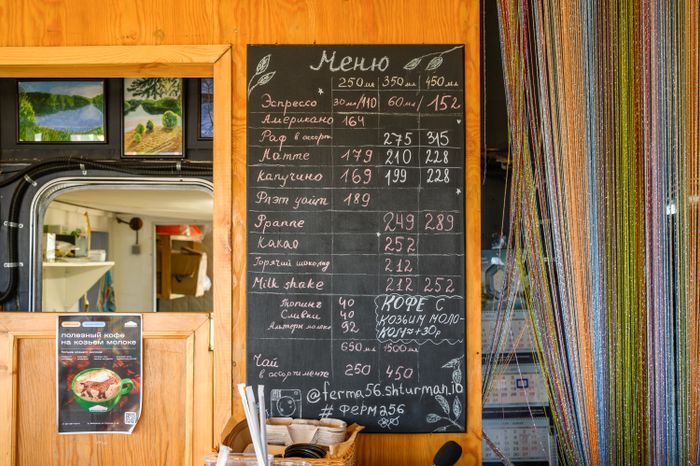 Меню
250 мл 350 мл 450 мл
Эспрессо 30 мл/110 60 мл/152
Американо 164
Раф в ассорт. 275 315
Матте 179 210 228
капучино 169 199 228
Флэт уайт 189
Фраппе 249 289
Какао 252
Горячий шоколад 212
Milk shake 212 252
Топинг 40
Сливки 40
Альтерн молоко 92
КОФЕ С
КОЗЬИМ МОЛО-
КОМ = +30р
650 мл 1500 мл
Чай
в ассортименте 250 450
@ferma56.shturman.io
# ферм256
полезный кофе
на козьем молоке